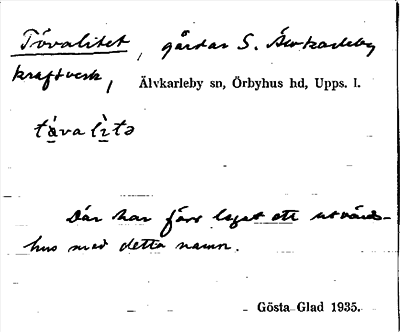 Tóvalitet, gårdar S. Älvkarleby
kraftverk,
Älvkarleby sn, Örbyhus hd, Upps. l.
tá̱va lì̱tə
Där har förr legat ett utvärds-
hus med detta namn.
Gösta Glad 1935.